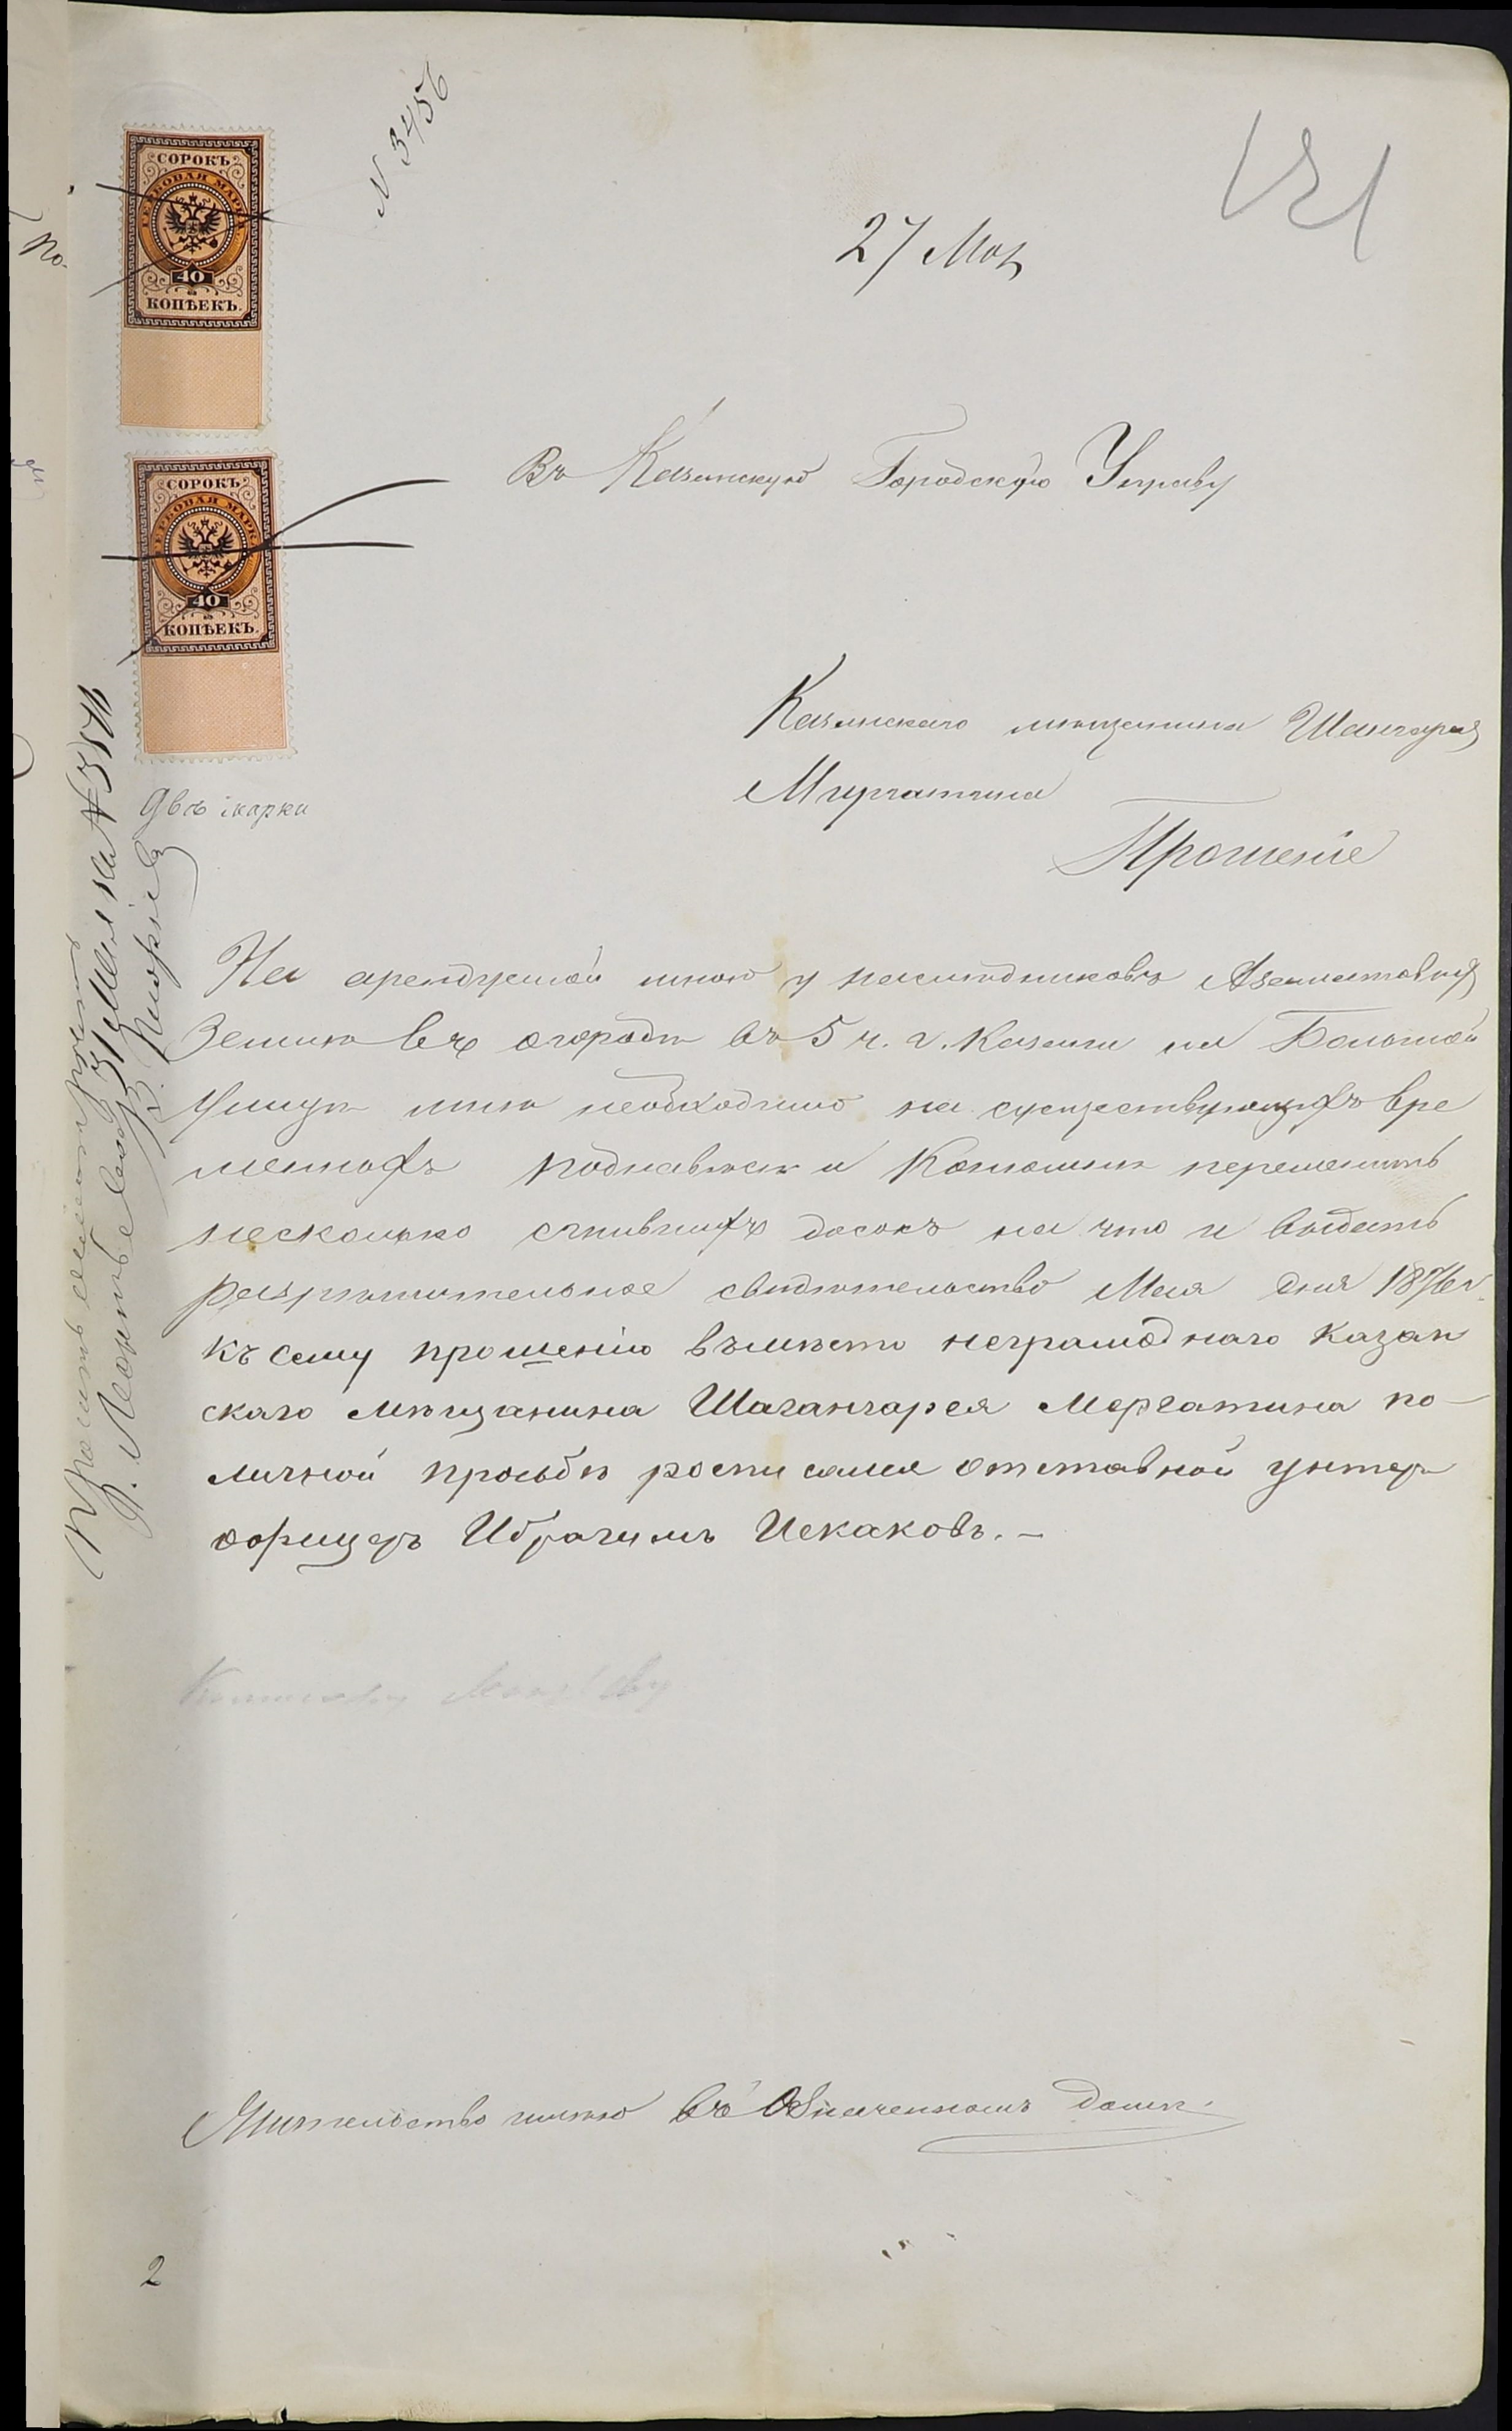 N 3456
121
27 Мая
СОРОКЪ
ГЕРБОВАЯ МАРКА
40
КОПѢЕКЪ.
СОРОКЪ
ГЕРБОВАЯ МАРКА
40
КОПѢЕКЪ.
Двѣ марки
Въ Казанскую Городскую Управу
Казанскаго мѣщанина Шангарея
Миргатина
Прошеніе
На арендуемой мною у наслѣдниковъ
Землѣ въ огородѣ въ 5 ч. г. Казани на Большой
улицѣ мнѣ необходимо на существующихъ вре
менныхъ поднавѣсѣ и Конюшнѣ перешить
несколько сгнившихъ досокъ на что и выдать
разрѣшительное свидѣтельство Мая дня 1876 г.
Къ сему прошенію вмѣсто неграмоднаго Казан
скаго мѣщанина Шагангарея Мергатина по-
личной просьбѣ росписался отставной унтеръ
офицеръ Ибрагимъ Искаковъ.-
Жительство имѣю въ Означенномъ домѣ.
2